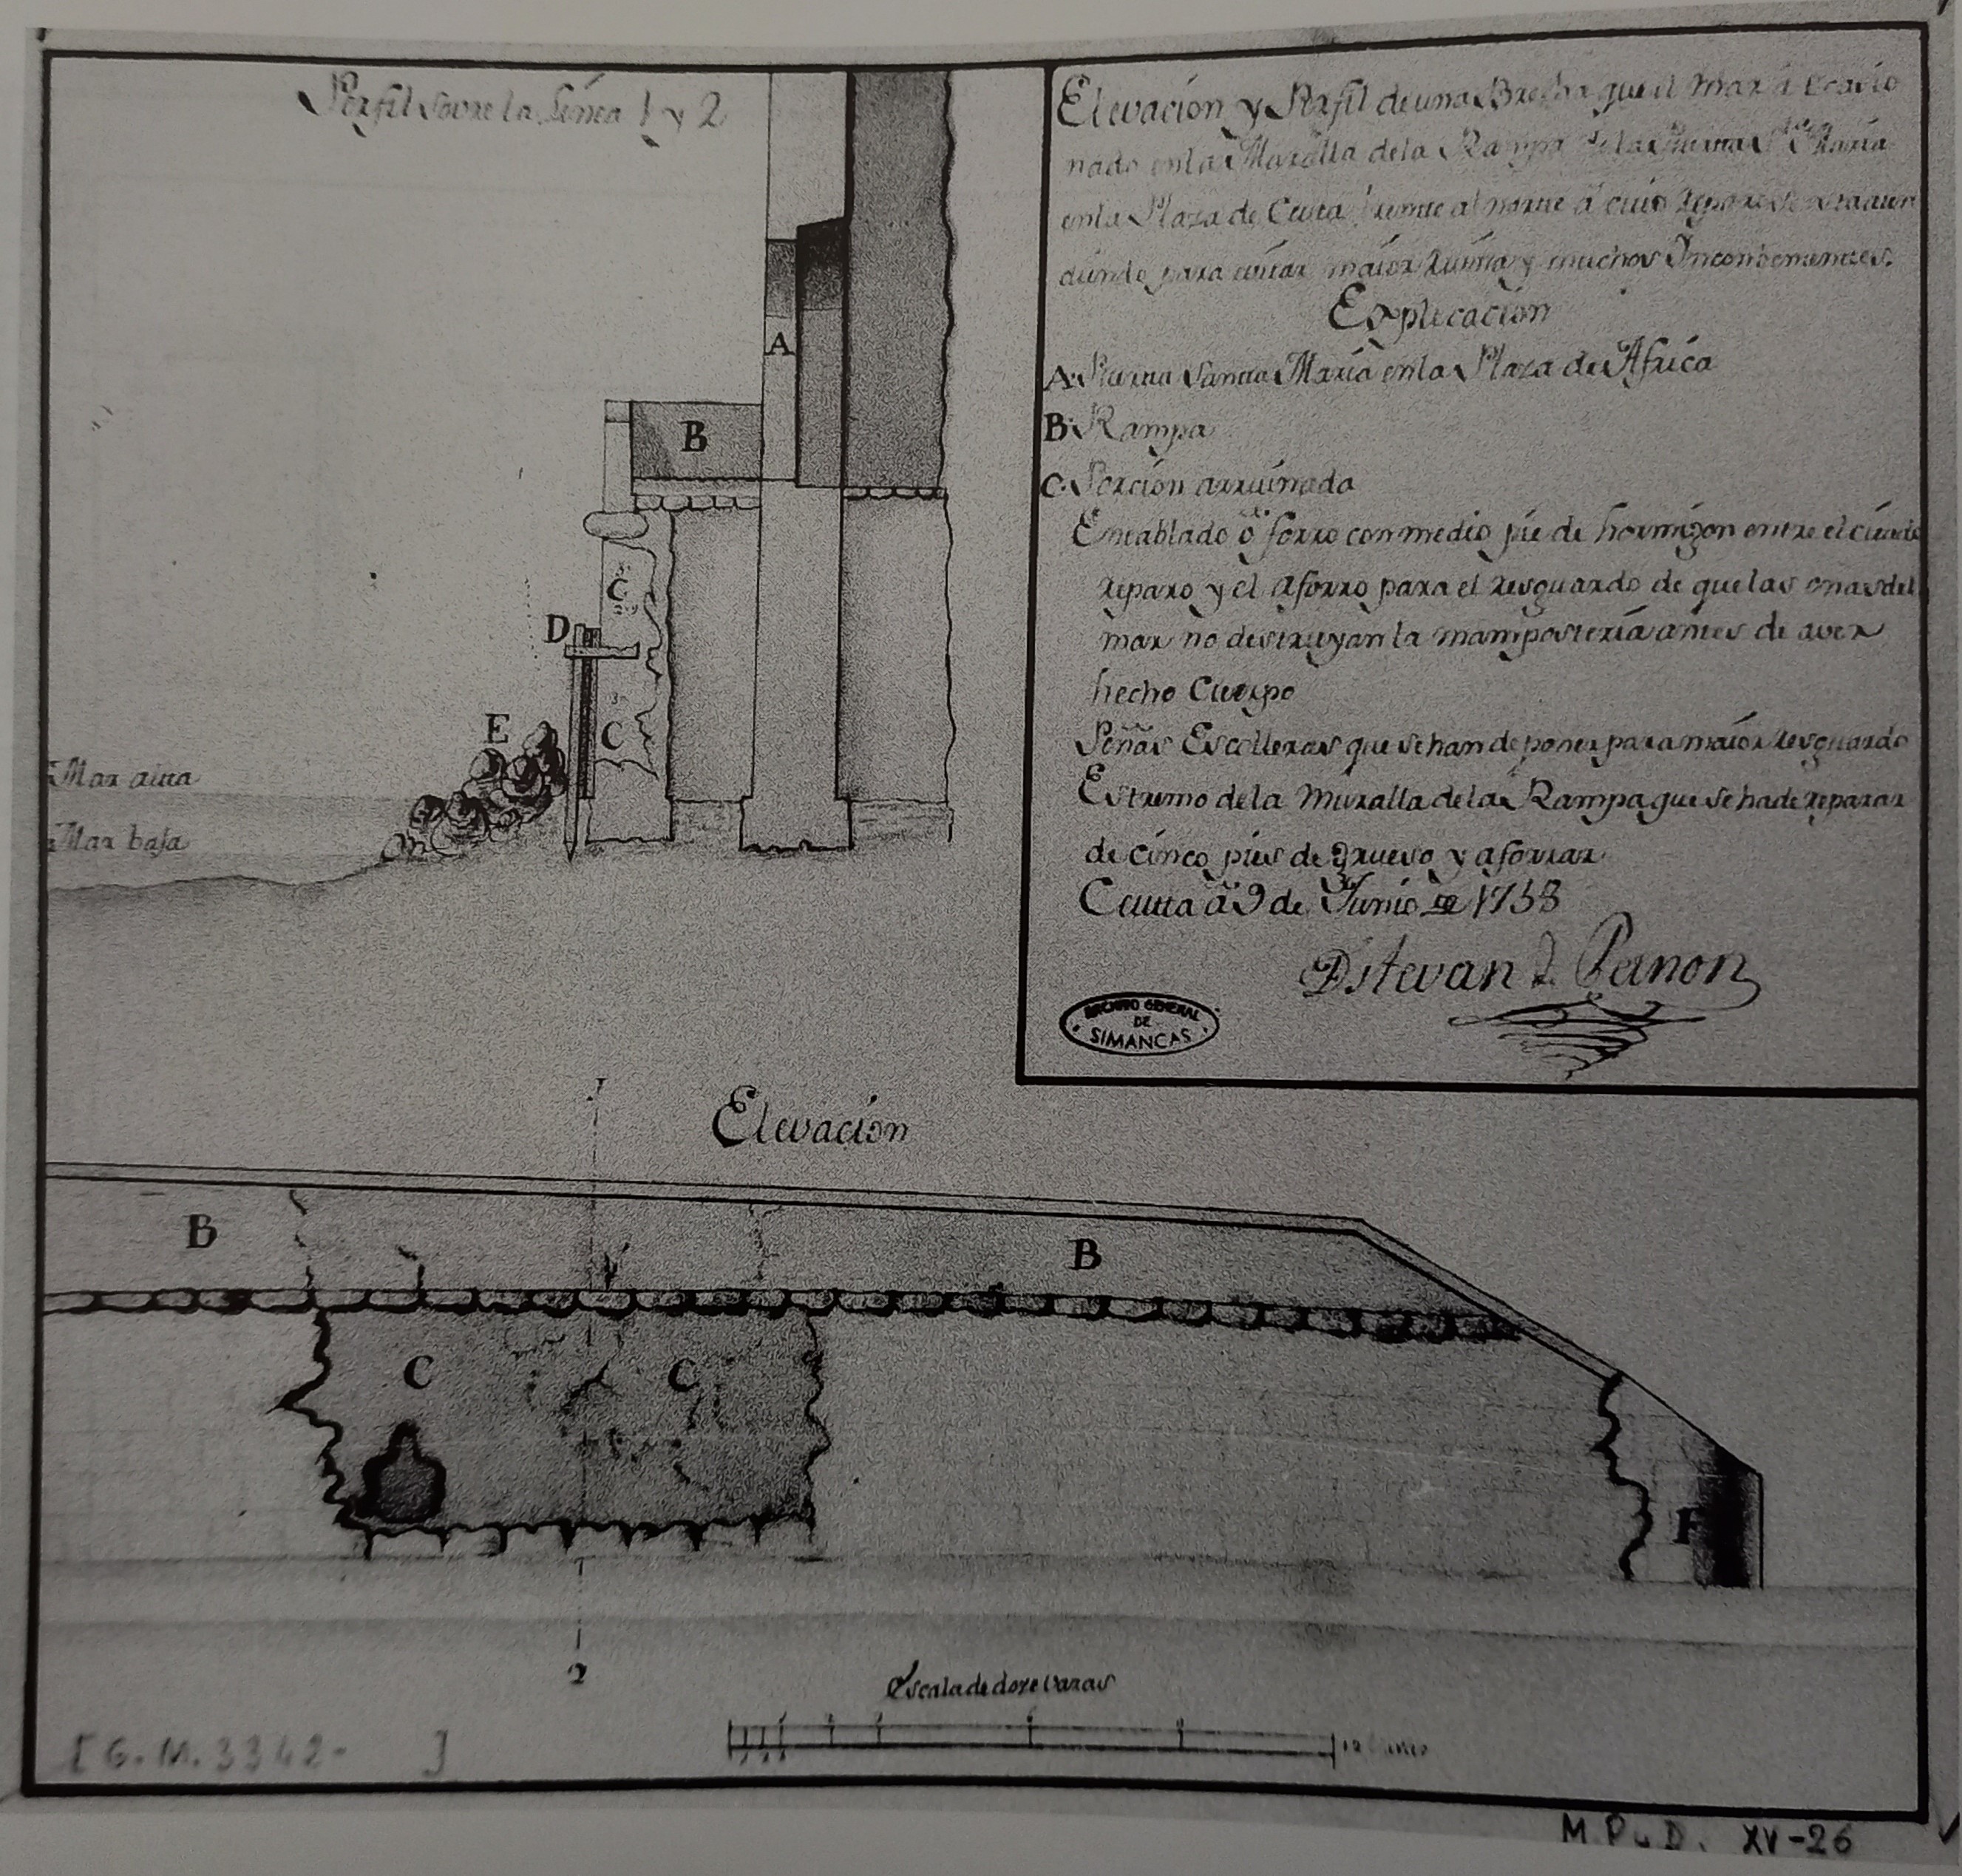 Perfil sovre la Linea 1 y 2
Elevación y Perfil de una Brecha que el Mar á Ecacio
nado en la Maralla dela Rampa dela Puerta Sta María
en la Plaza de Ceuta frente al norte á cuio reparo se
para evitar maior ruina y muchos Inconvenientes.
Explicación
A. Puerta Santa María en la Plaza de Africa
B. Rampa
C. Porción arruinada
Entablado ó forro con medio pie de hormigon entre el
reparo y el Aforro para el resguardo de que las onas del
mar no destruyan la mamposteria antes de aver
hecho Cuerpo
Peñas Escolleras que se han de poner para maior resguardo
Estremo dela Muralla dela Rampa que se ha de reparar
de cinco pies de grueso y aforrar
Ceutta á 9 de Junio de 1738
Dn Estevan de Panon
ARCHIVO GENERAL
DE
SIMANCAS
A
B
C
D
C
E
Mar alta
Mar baja
1
Elevación
B
B
C
C
F
2
Escala de doze varas
12 Varas
[G.M. 3342- ]
M.P. y D. XV-26